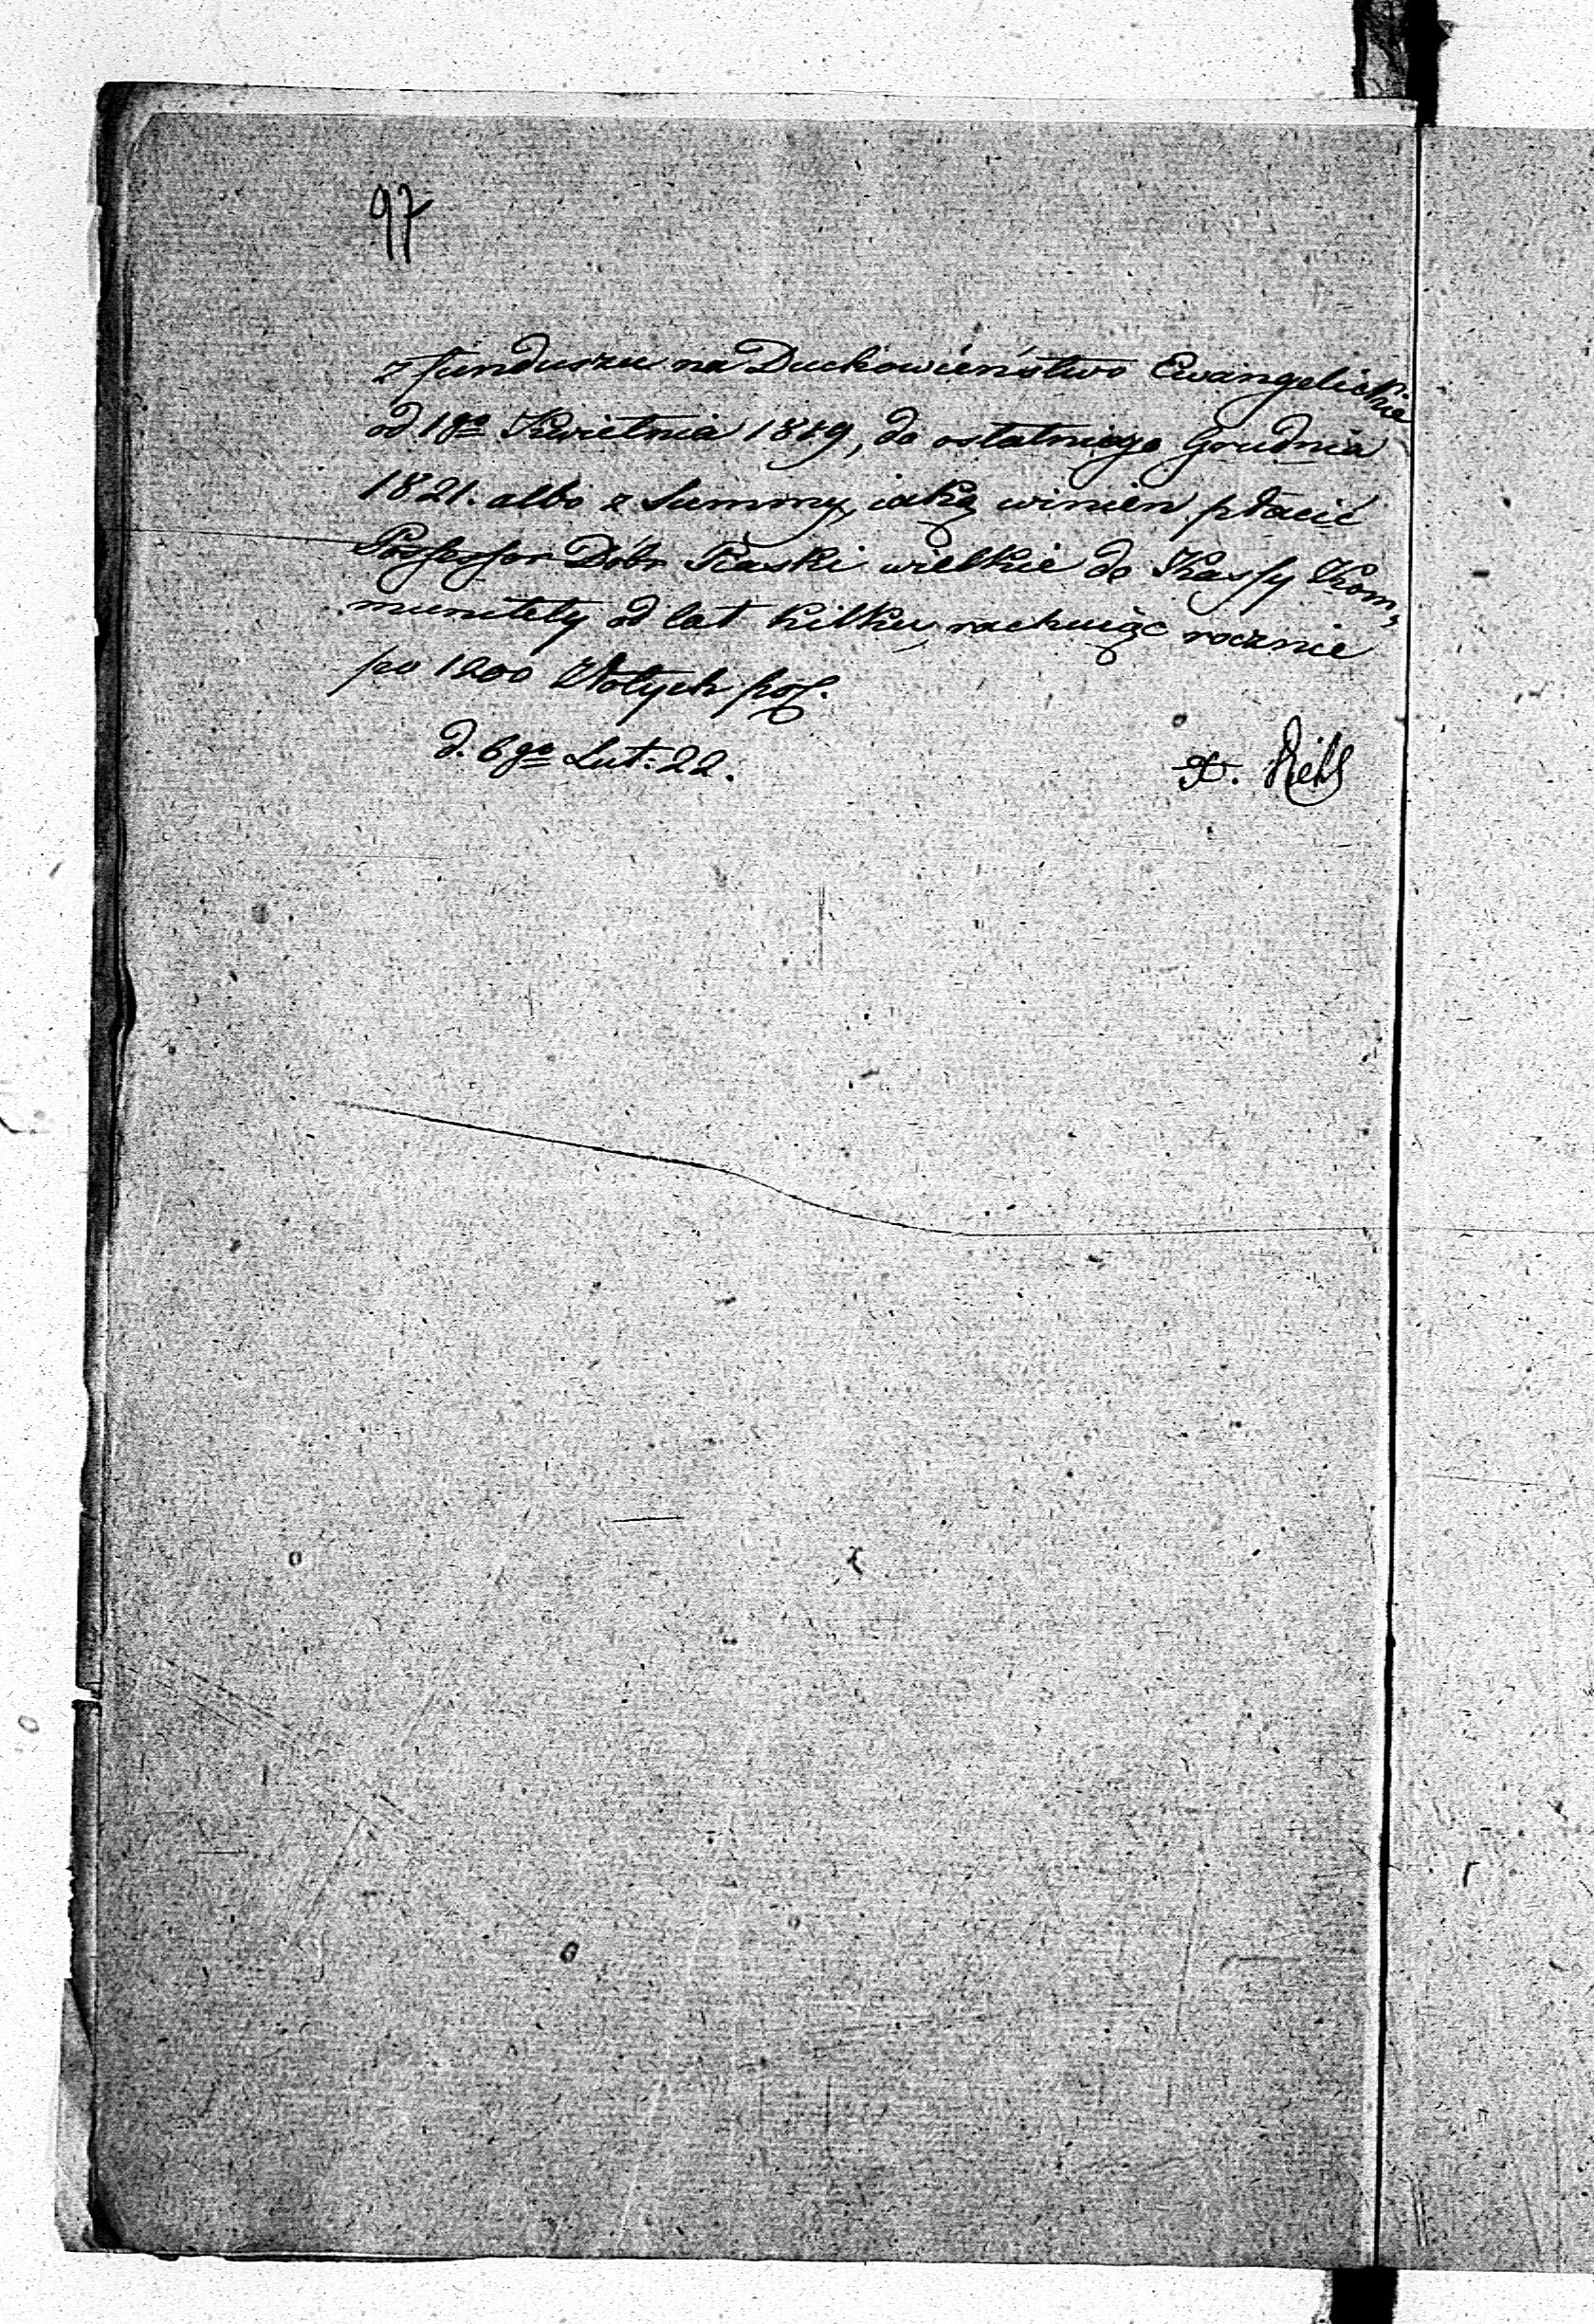 97
z funduszu na Duchowieństwo Ewangelickie
od 1go Kwietnia 1819, do ostatniego Grudnia
1821. albo z Summy, iaką winien płacić
Possessor Dóbr Piaski wielkie do Kassy Kom,
munitety od lat kilku, rachuiąc rocznie
po 1200 Złotych pol.
d. 6go Lut: 22.
X.